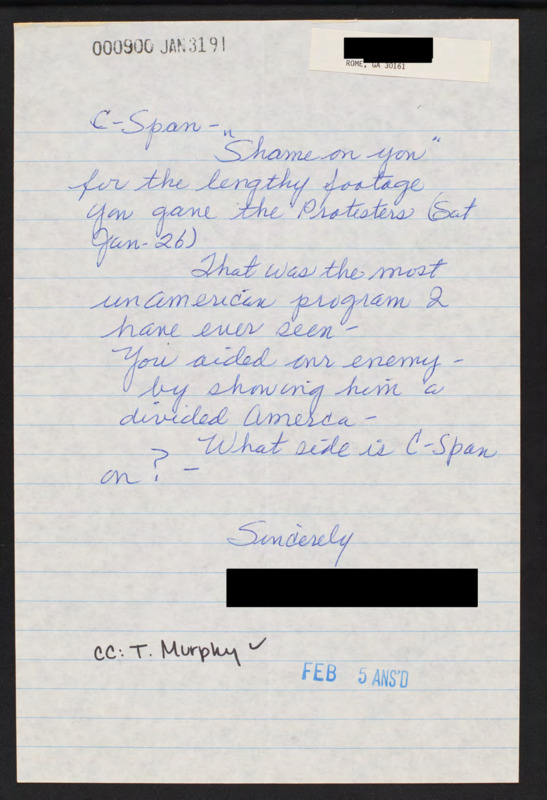 000900 JAN3191
ROME, GA 30161
C-Span -
"Shame on you"
for the lengthy footage
you gave the Protesters (Sat
Jan-26)
That was the most
unamerican program I
have ever seen -
You aided our enemy -
by showing him a
divided Amerca -
What side is C-Span
on? -
Sincerely
cc: T. Murphy ✓
FEB 5 ANS'D